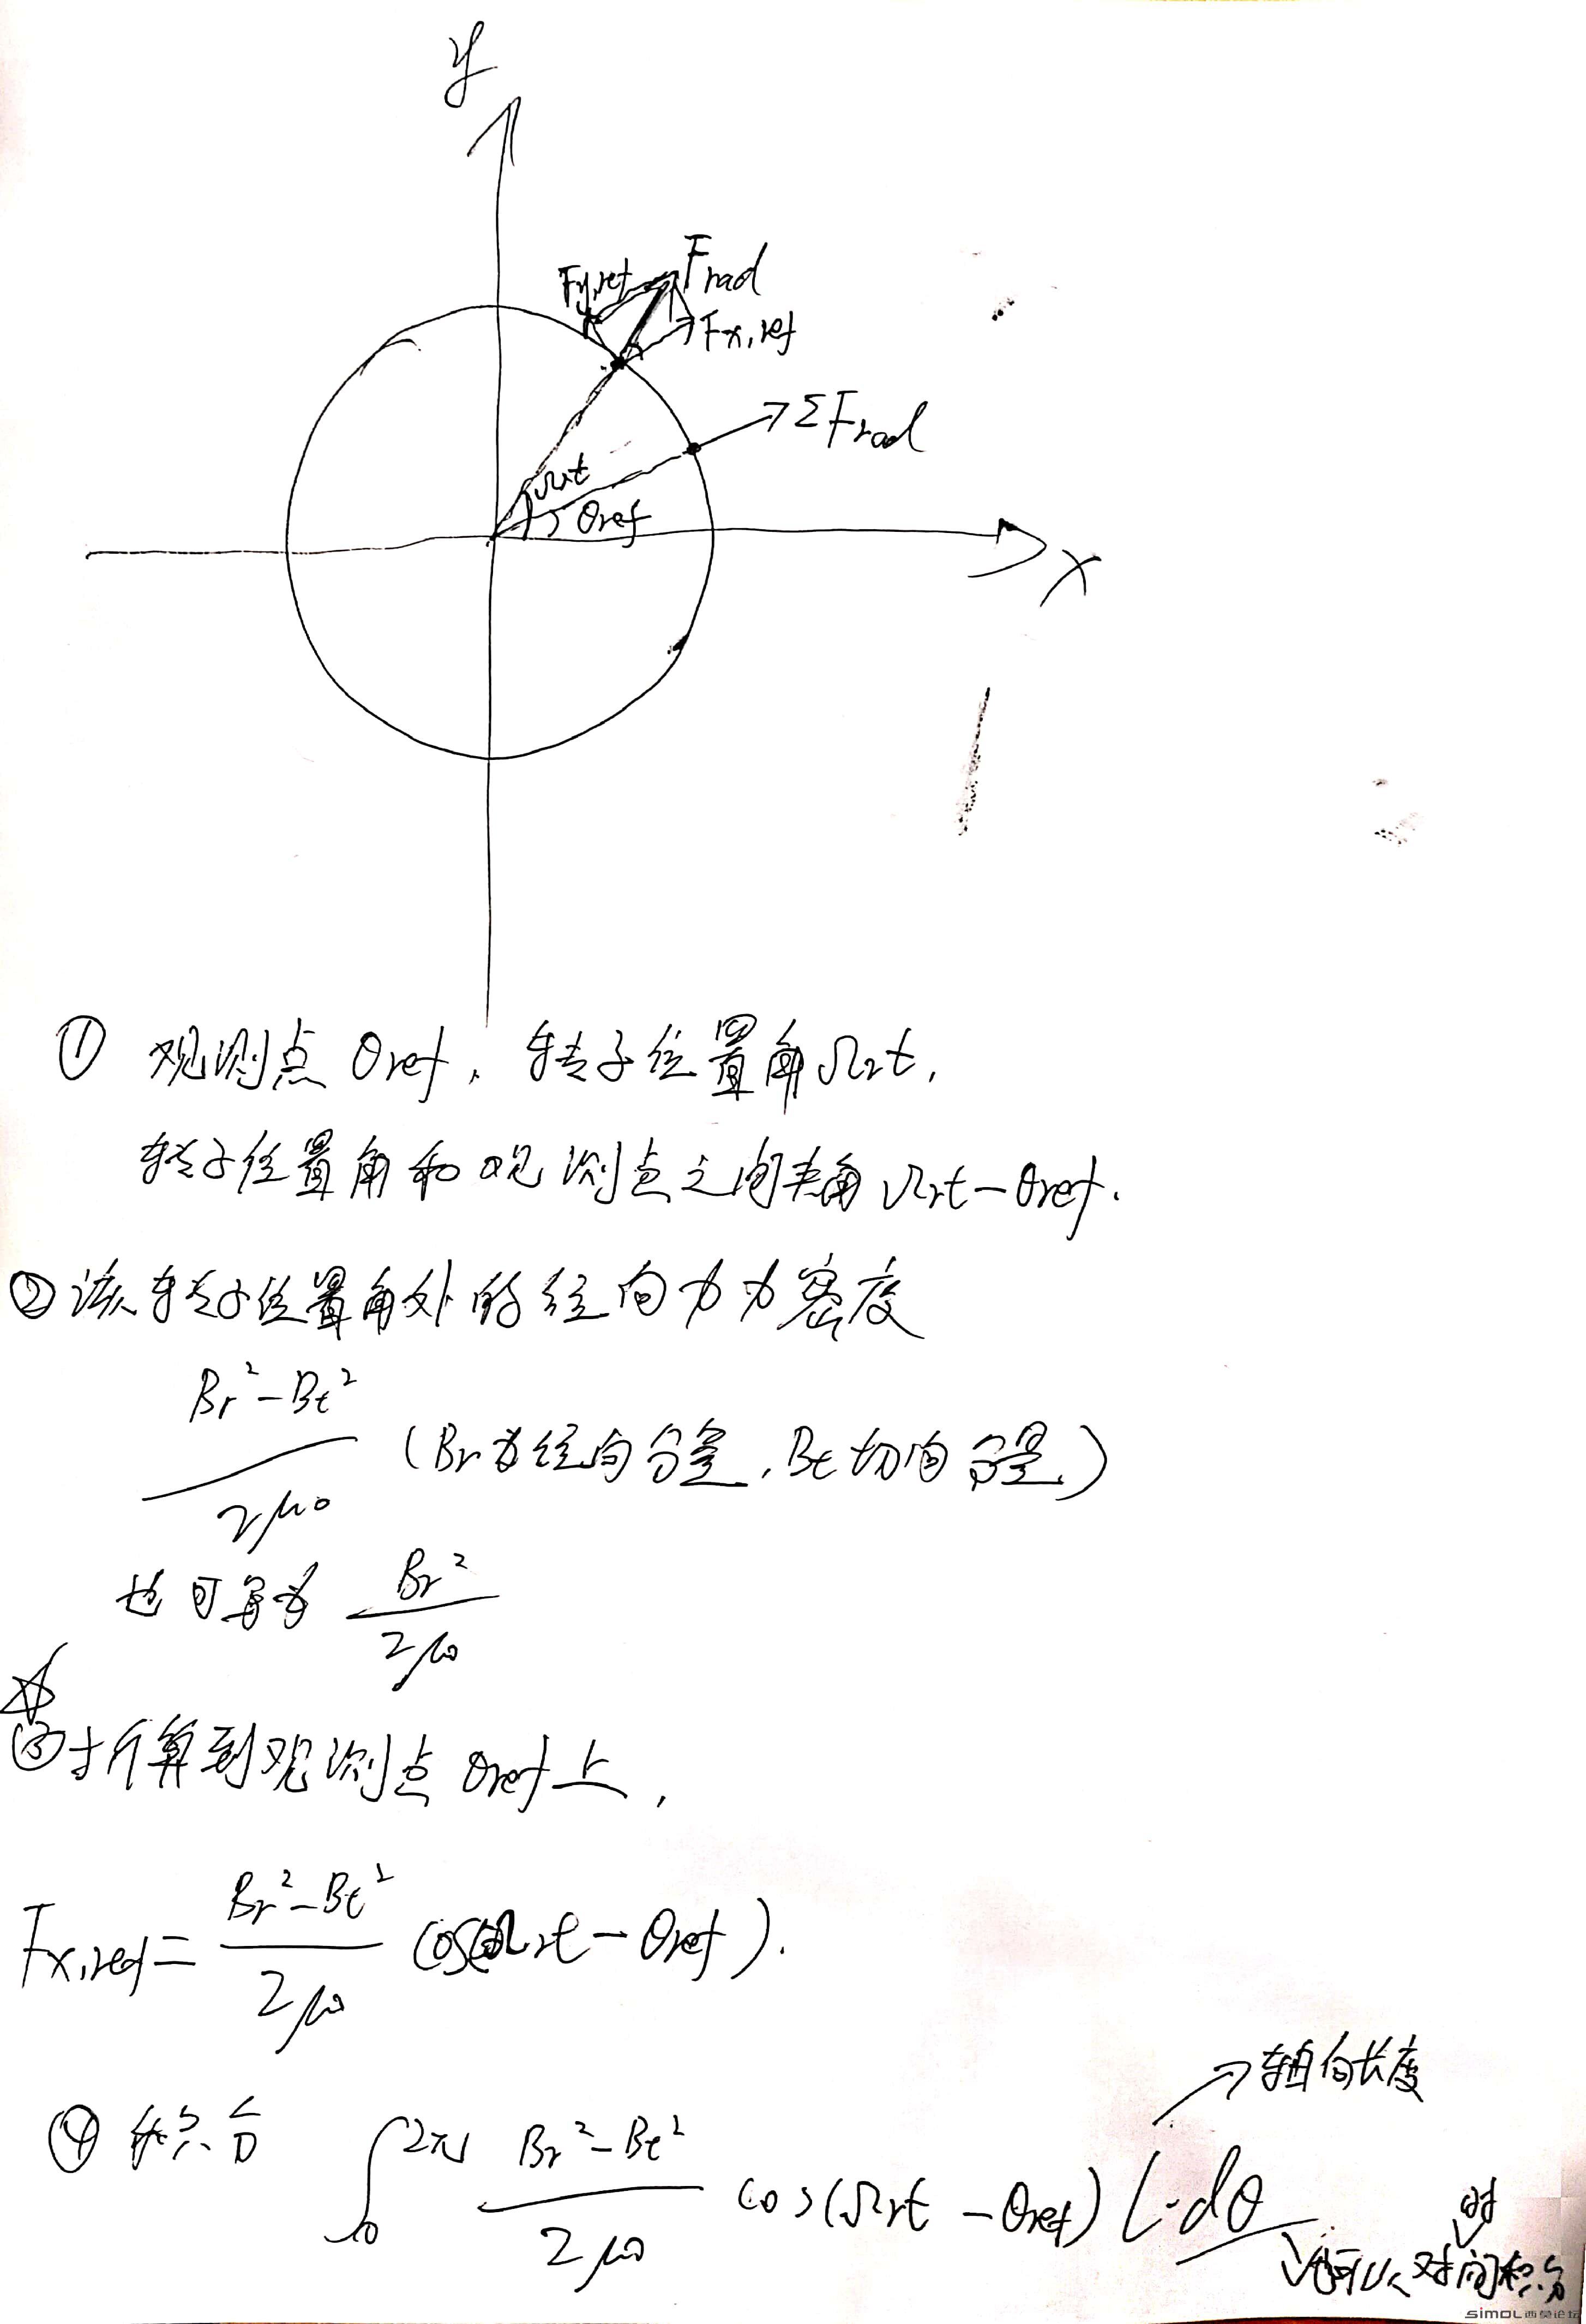 y
Fy,ref Frad
Fx,ref
ΣFrad
Ωrt
θref
x
① 观测点 θref, 转子位置角Ωrt,
转子位置角和观测点之间夹角 Ωrt-θref.
②该转子位置角处的径向力力密度
Br²-Bt²
2μ0
(Br为径向分量, Bt切向分量)
也可写为 Br²
2μ0
☆
③折算到观测点 θref上,
Fx,ref = Br²-Bt² / 2μ0 cos(Ωrt-θref).
轴向长度
④ 积分 ∫0 2π Br²-Bt² / 2μ0 cos(Ωrt-θref) L·dθ
时
可以对间积分
SIMOL 西莫论坛